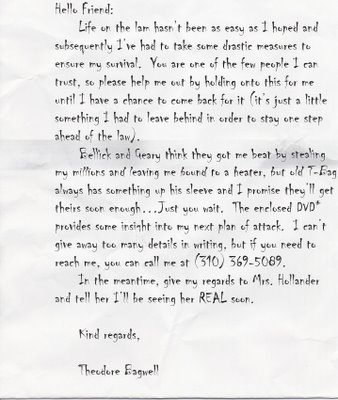 Hello Friend:
Life on the lam hasn't been as easy as I hoped and
subsequently I've had to take some drastic measures to
ensure my survival. You are one of the few people I can
trust, so please help me out by holding onto this for me
until I have a chance to come back for it (it's just a little
something I had to leave behind in order to stay one step
ahead of the law).
Bellick and Geary think they got me beat by stealing
my millions and leaving me bound to a heater, but old T-Bag
always has something up his sleeve and I promise they'll get
theirs soon enough...Just you wait. The enclosed DVD*
provides some insight into my next plan of attack. I can't
give away too many details in writing, but if you need to
reach me, you can call me at (310) 369-5089.
In the meantime, give my regards to Mrs. Hollander
and tell her I'll be seeing her REAL soon.
Kind regards,
Theodore Bagwell